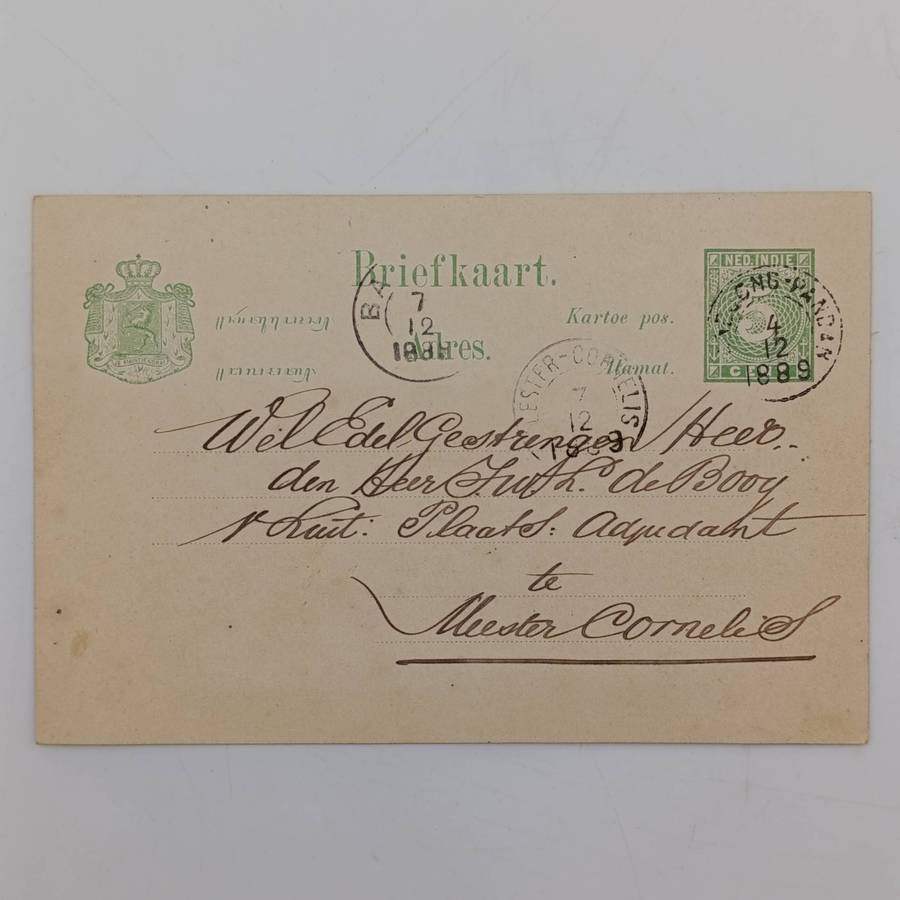 NED. INDIE
Briefkaart.
Kartoe pos.
Adres.
Alamat.
CENT
BA
7
12
1889
MEESTER-CORNELIS
7
12
1889
PANDAN
4
12
1889
Wel Edel Gestrengen Heer
den Heer de Booy
1e Luit: Plaats: Adjudant
te
Meester Cornelis